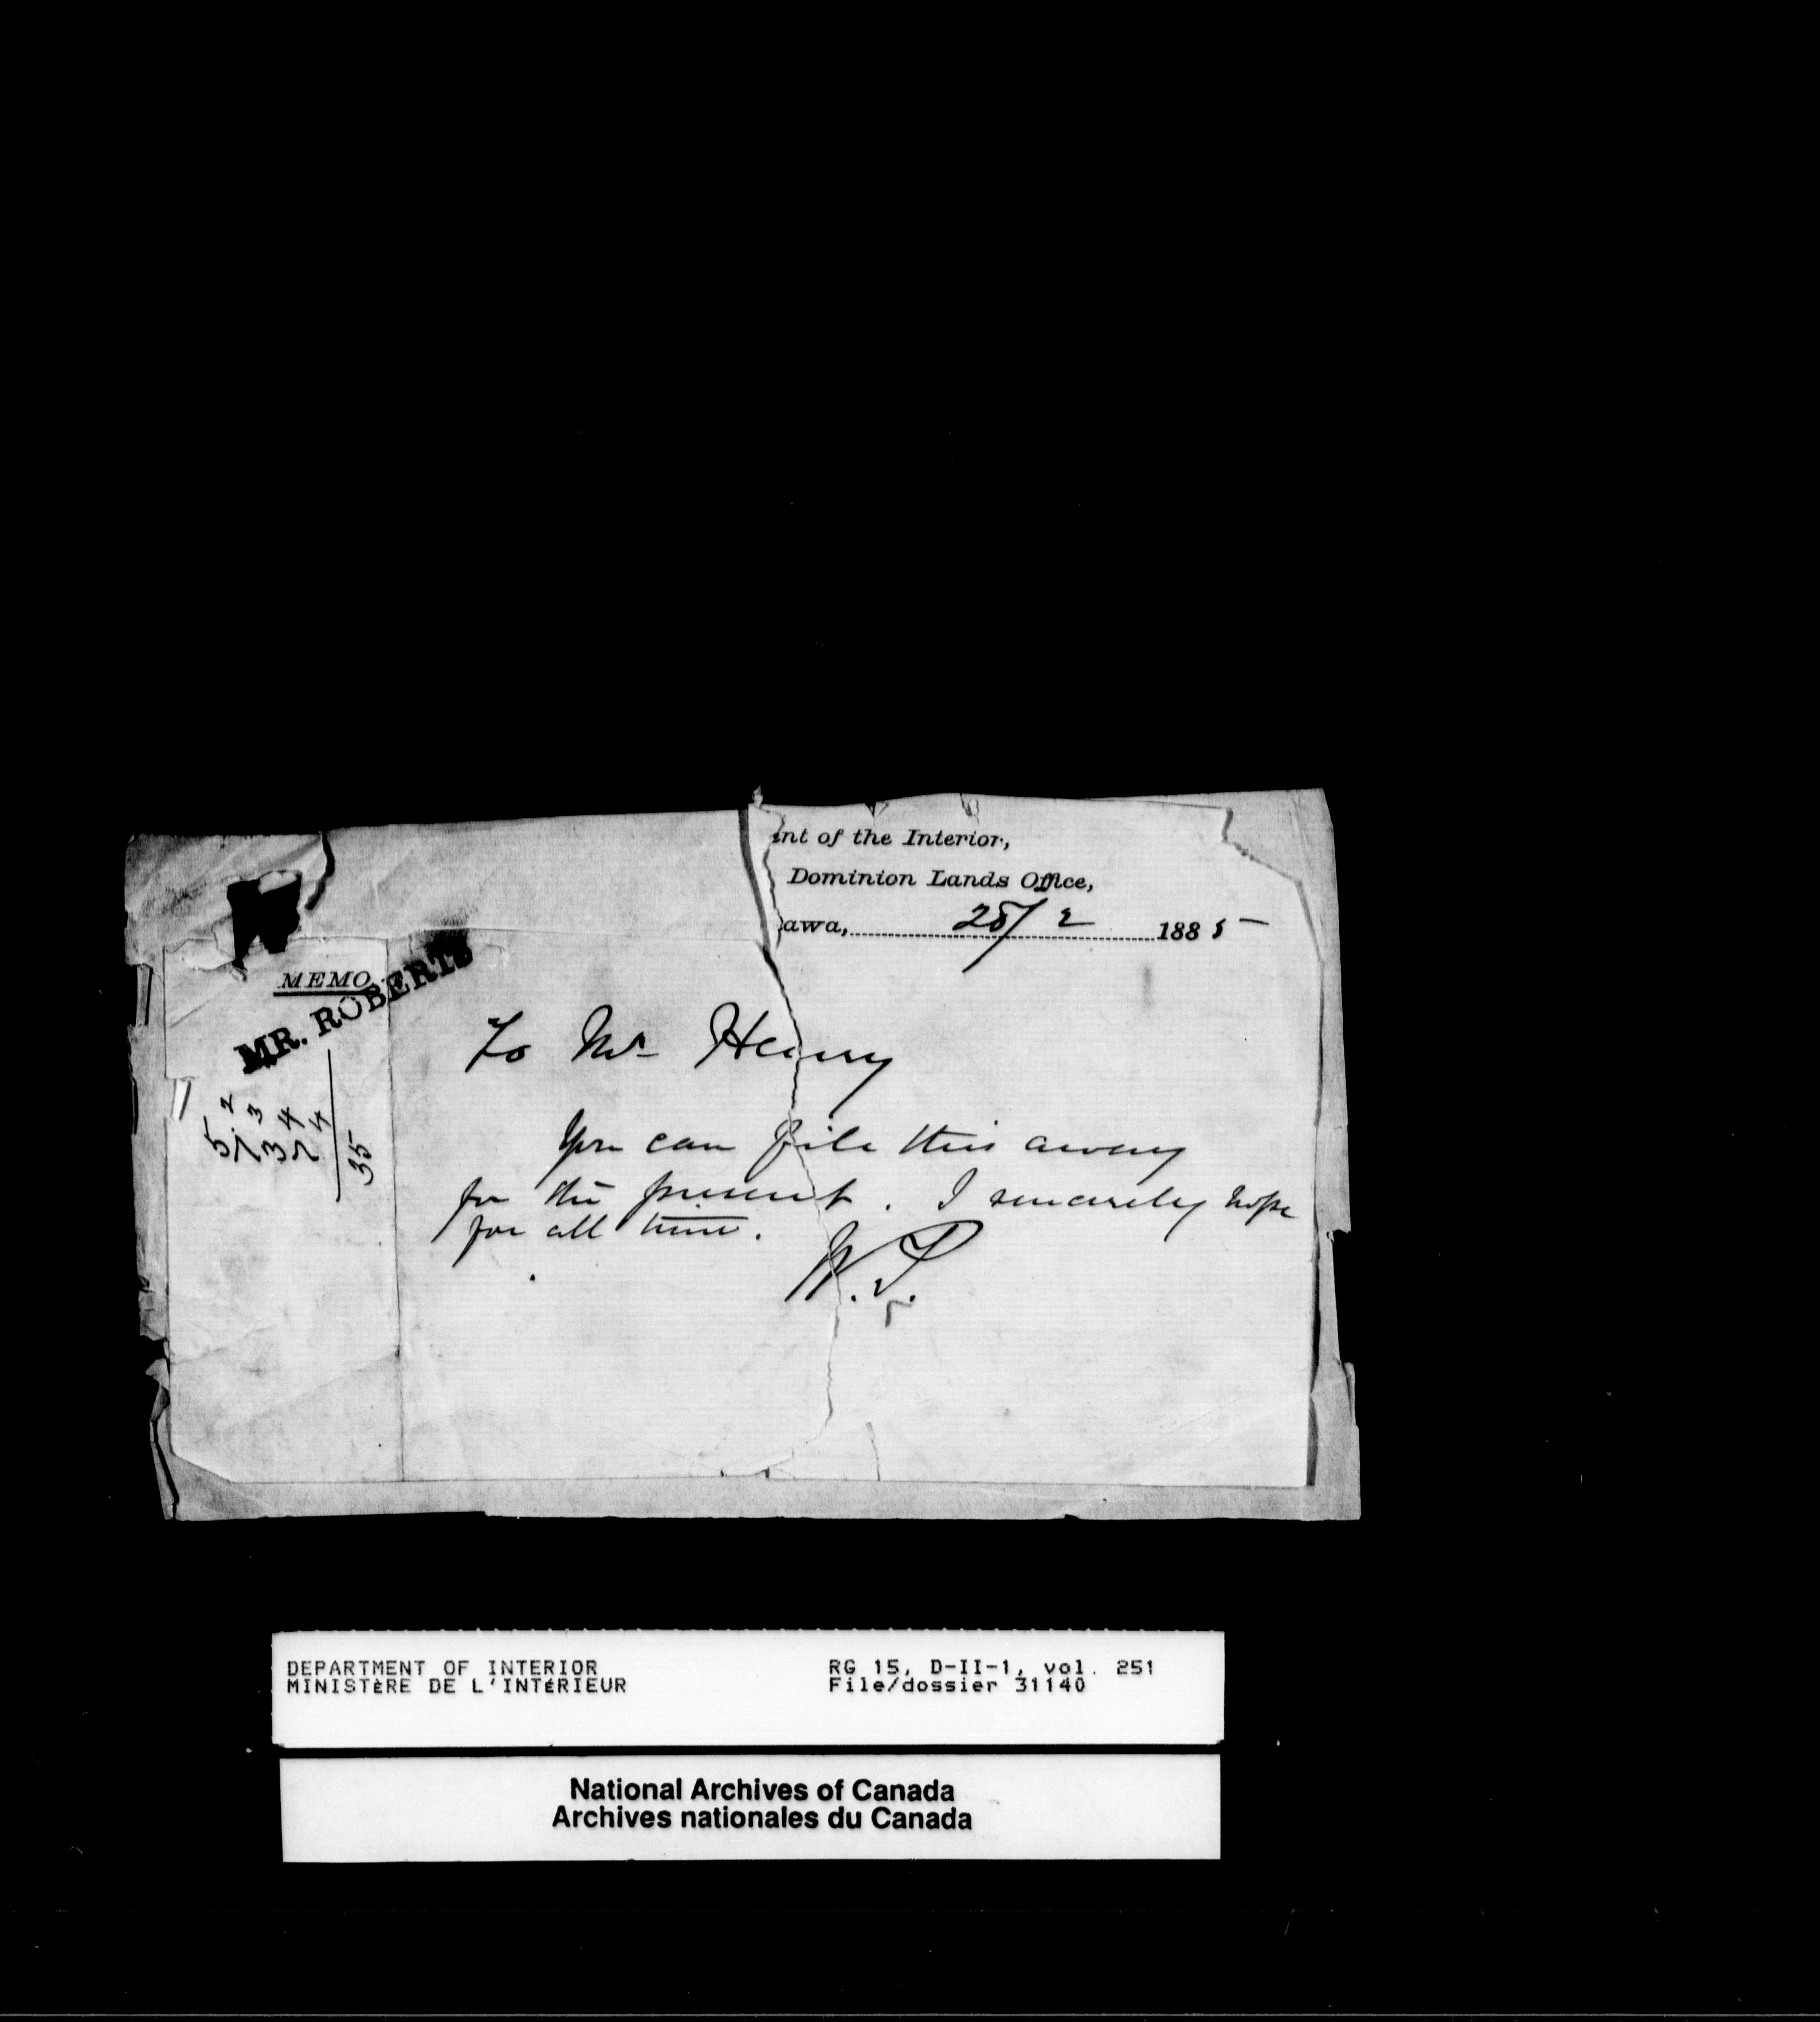 nt of the Interior,
Dominion Lands Office,
awa, 25/2 1885
MEMO
MR. ROBERTS
To Mr Henry
You can file this away
for the present. I sincerely hope
for all time.
35
DEPARTMENT OF INTERIOR
MINISTÈRE DE L'INTÉRIEUR
RG 15, D-II-1, vol. 251
File/dossier 31140
National Archives of Canada
Archives nationales du Canada